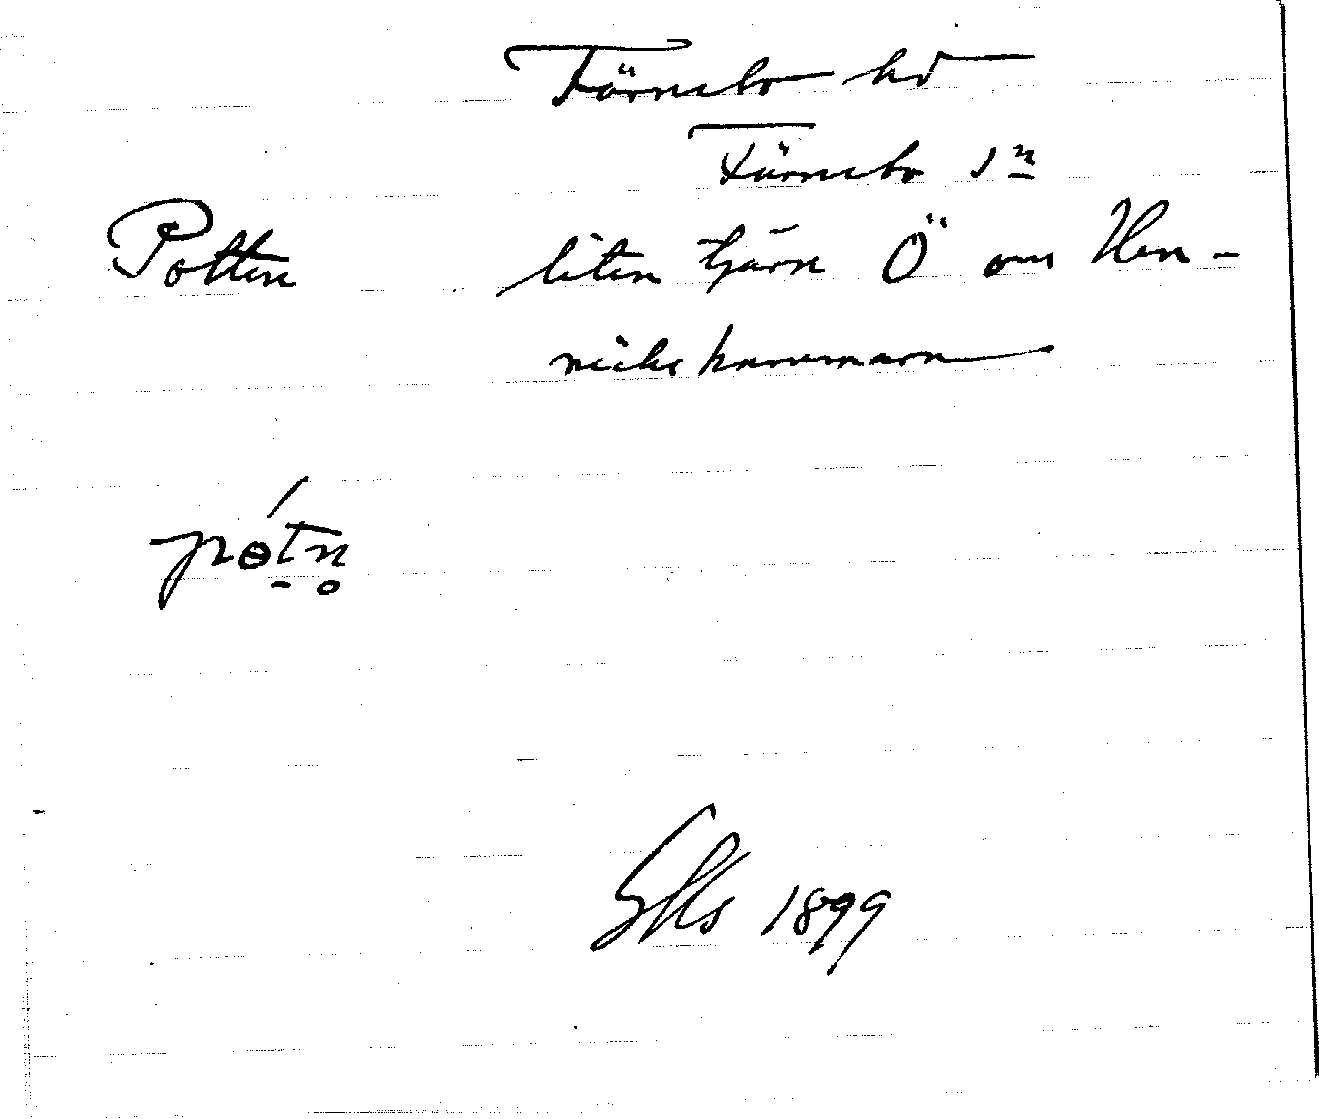 Färnebo hd
Färnebo sn
Potten liten tjärn Ö om Hen-
rickshammarn
pótn̥
1899